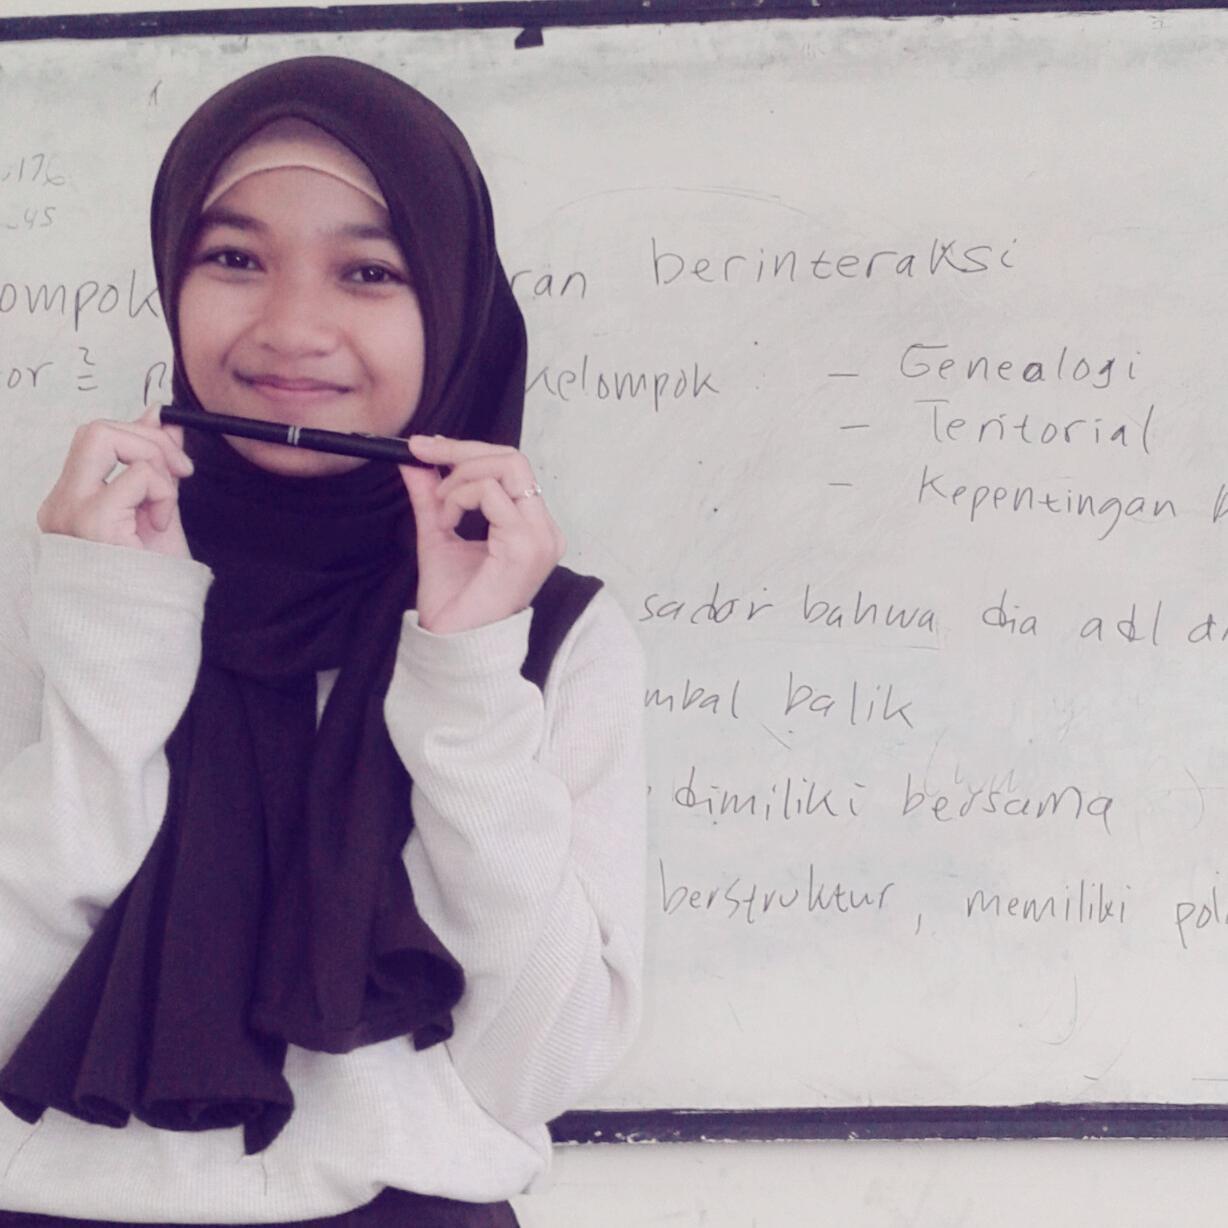 176
45
ompok ran berinteraksi
or kelompok : - Genealogi
- Teritorial
- Kepentingan
sadar bahwa dia adl
mbal balik
dimiliki bersama
berstruktur, memiliki pol